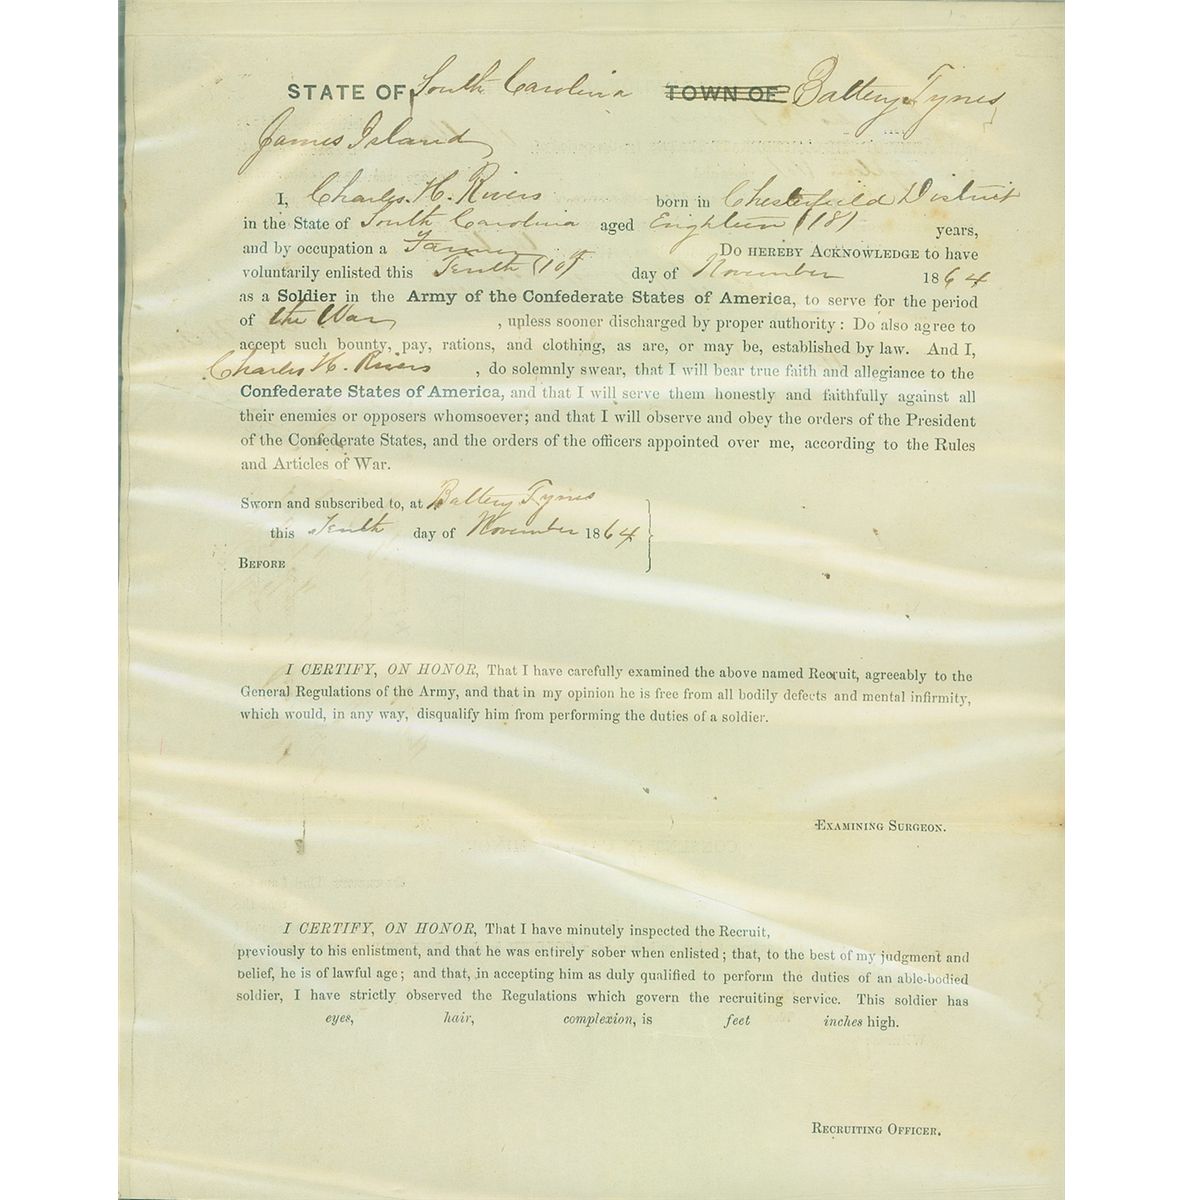 STATE OF South Carolina TOWN OF Battery Tynes
James Island
I, Charles H. Rivers born in Chesterfield District
in the State of South Carolina aged Eighteen (18) years,
and by occupation a Farmer DO HEREBY ACKNOWLEDGE to have
voluntarily enlisted this Tenth (10th day of November 1864
as a Soldier in the Army of the Confederate States of America, to serve for the period
of the War , unless sooner discharged by proper authority: Do also agree to
accept such bounty, pay, rations, and clothing, as are, or may be, established by law. And I,
Charles H. Rivers , do solemnly swear, that I will bear true faith and allegiance to the
Confederate States of America, and that I will serve them honestly and faithfully against all
their enemies or opposers whomsoever; and that I will observe and obey the orders of the President
of the Confederate States, and the orders of the officers appointed over me, according to the Rules
and Articles of War.
Sworn and subscribed to, at Battery Tynes
this Tenth day of November 1864
BEFORE
I CERTIFY, ON HONOR, That I have carefully examined the above named Recruit, agreeably to the
General Regulations of the Army, and that in my opinion he is free from all bodily defects and mental infirmity,
which would, in any way, disqualify him from performing the duties of a soldier.
EXAMINING SURGEON.
I CERTIFY, ON HONOR, That I have minutely inspected the Recruit,
previously to his enlistment, and that he was entirely sober when enlisted; that, to the best of my judgment and
belief, he is of lawful age; and that, in accepting him as duly qualified to perform the duties of an able-bodied
soldier, I have strictly observed the Regulations which govern the recruiting service. This soldier has
eyes, hair, complexion, is feet inches high.
RECRUITING OFFICER.